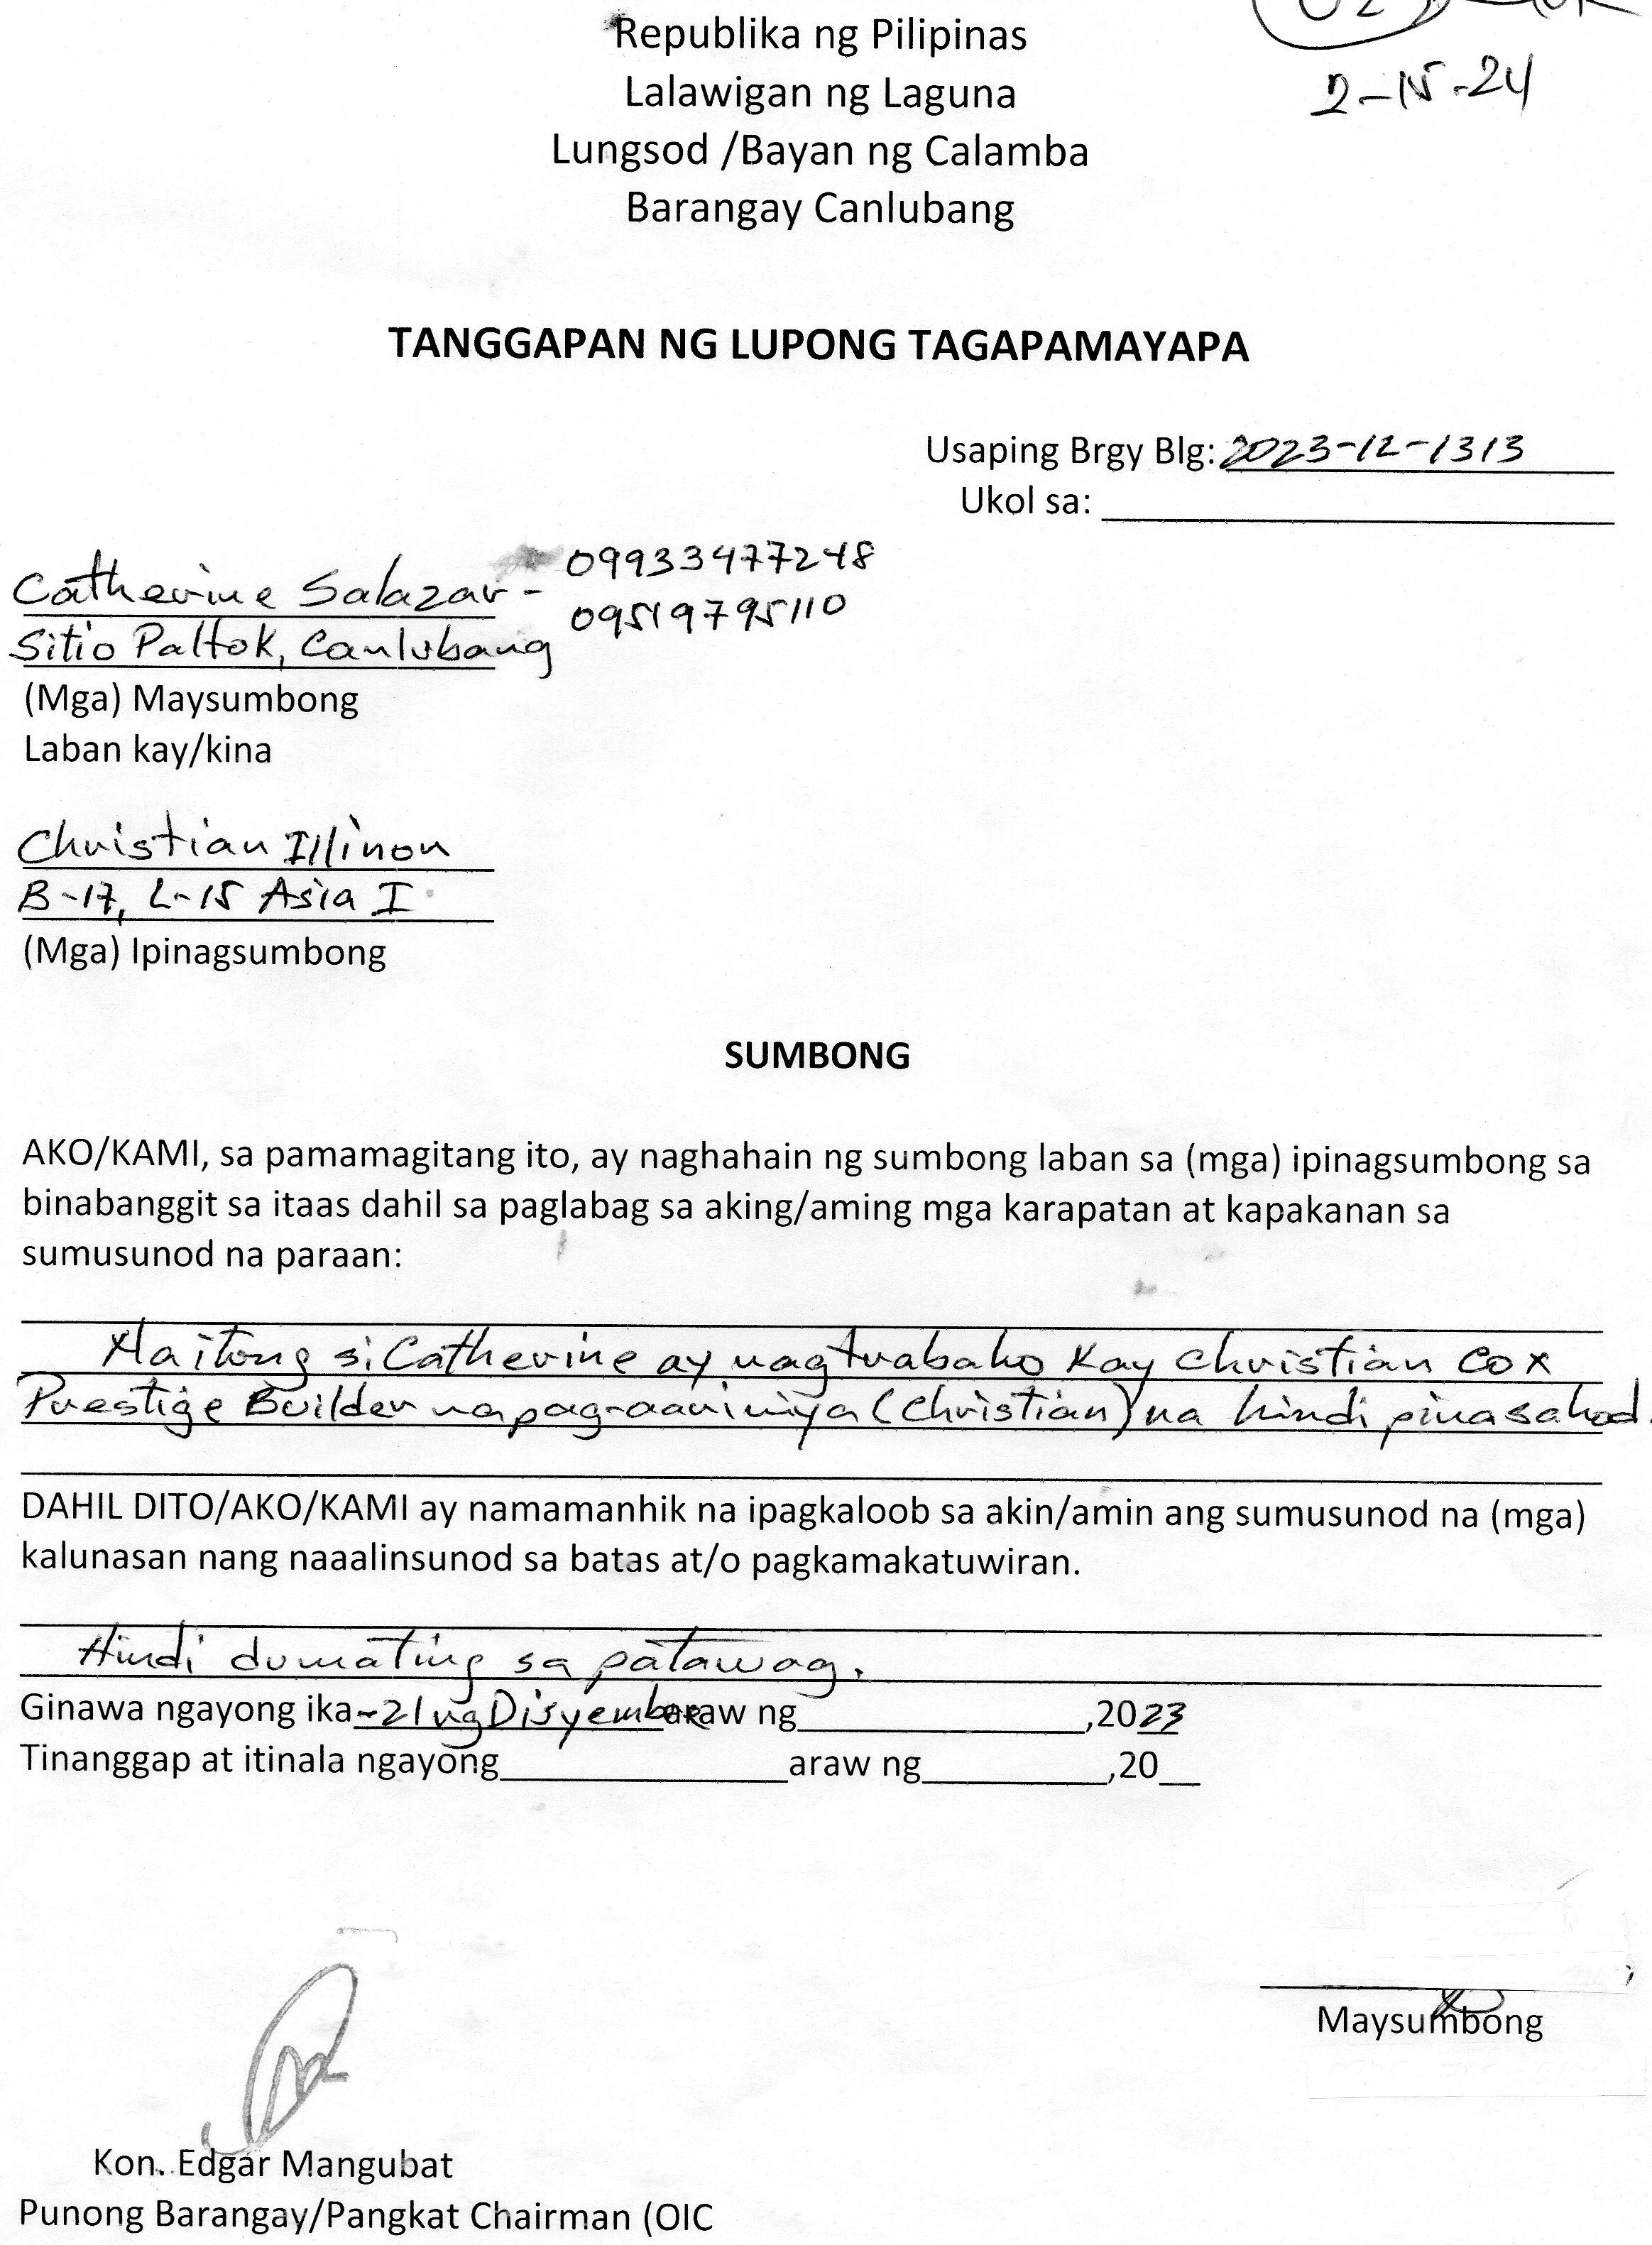 2-15-24
Republika ng Pilipinas
Lalawigan ng Laguna
Lungsod /Bayan ng Calamba
Barangay Canlubang
TANGGAPAN NG LUPONG TAGAPAMAYAPA
Usaping Brgy Blg: 2023-12-1313
Ukol sa:
Catherine Salazar - 09933477248
09519795110
Sitio Paltok, Canlubang
(Mga) Maysumbong
Laban kay/kina
Christian Illinon
B-17, L-15 Asia I
(Mga) Ipinagsumbong
SUMBONG
AKO/KAMI, sa pamamagitang ito, ay naghahain ng sumbong laban sa (mga) ipinagsumbong sa
binabanggit sa itaas dahil sa paglabag sa aking/aming mga karapatan at kapakanan sa
sumusunod na paraan:
Na itong si Catherine ay nagtrabaho kay Christian Cox
Prestige Builder na pag-aari niya (Christian) na hindi pinasahod.
DAHIL DITO/AKO/KAMI ay namamanhik na ipagkaloob sa akin/amin ang sumusunod na (mga)
kalunasan nang naaalinsunod sa batas at/o pagkamakatuwiran.
Hindi dumating sa patawag.
Ginawa ngayong ika -21 ng Disyembre araw ng ,2023
Tinanggap at itinala ngayong araw ng ,20
Maysumbong
Kon. Edgar Mangubat
Punong Barangay/Pangkat Chairman (OIC